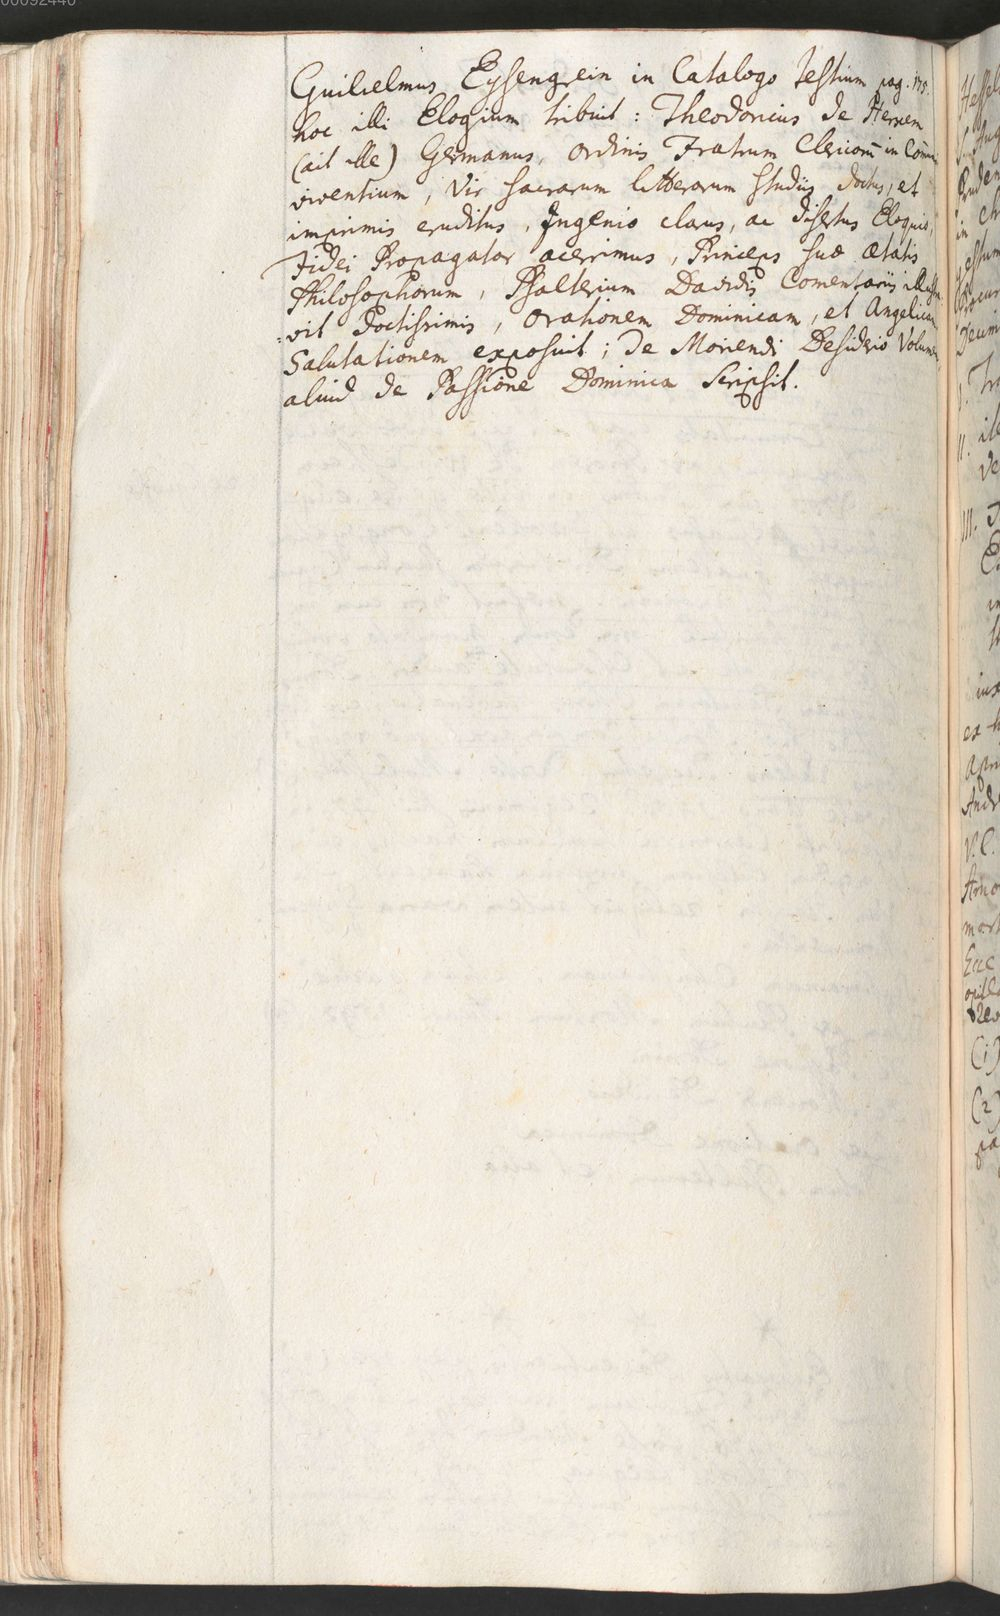 Guilielmus Eysengrein in Catalogo Testium pag. 175.
hoc illi Elogium tribuit : Theodoricus de Herxem
(ait ille) Germanus, ordinis Fratrum Clericorū in Com̄un
viventium, Vir sacrarum litterarum studiis doctus, et
imprimis eruditus, Ingenio clarus, ac disertus Eloquio,
Fidei Propagator acerrimus, Princeps suæ ætatis
Philosophorum, Psalterium Davidis Comentariis illustra
=vit doctissimis, Orationem Dominicam, et Angelicam
Salutationem exposuit ; de Moriendi Desiderio Volumen
aliud de Passione Dominica Scripsit.